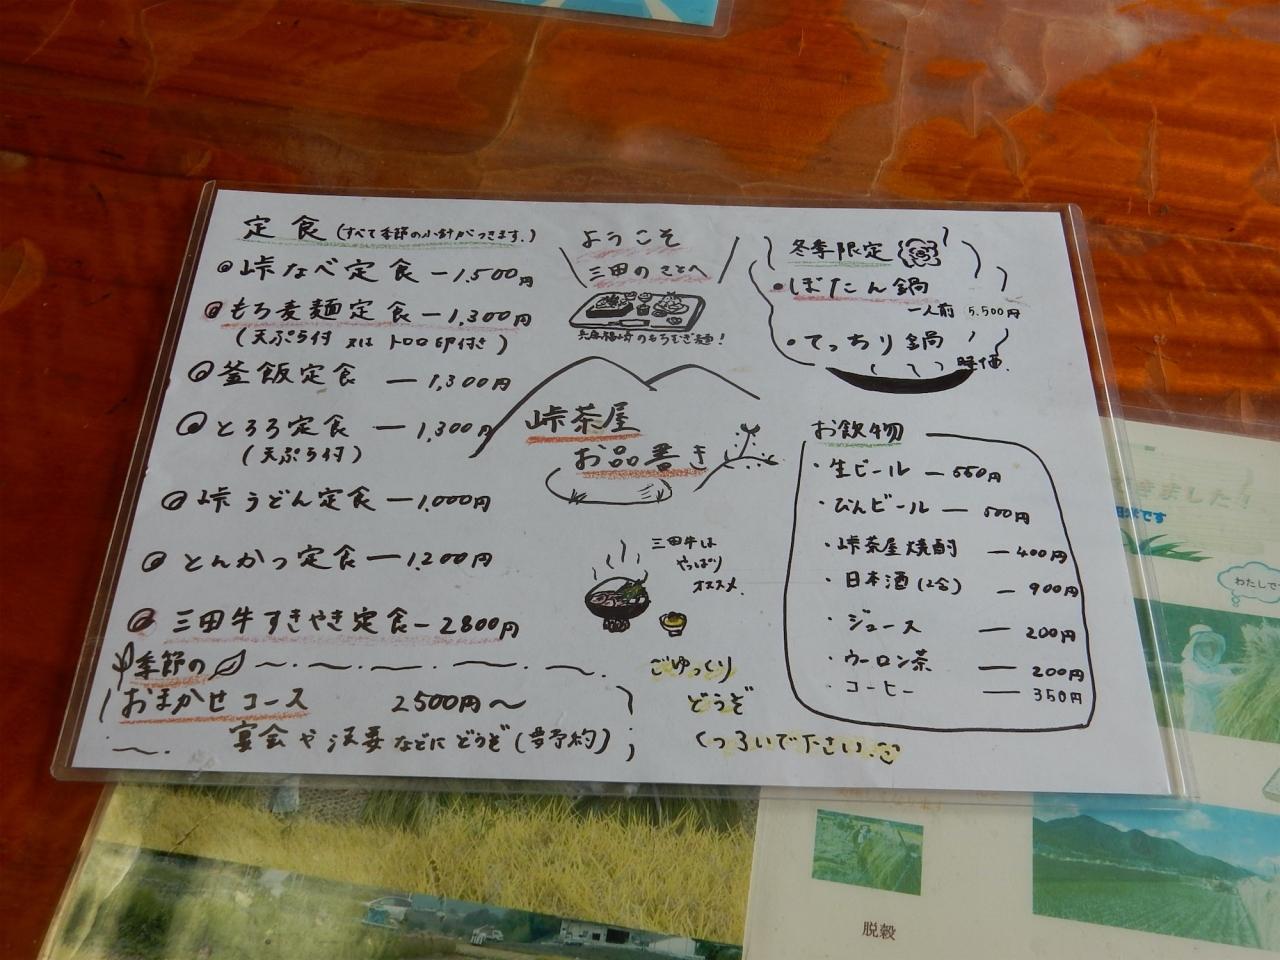 定食(すべて季節の小鉢がつきます。)
峠なべ定食 ー 1.500円
もろ麦麺定食 ー 1,300円
(天ぷら付 又は トロロ卵付き)
釜飯定食 ー 1,300円
とろろ定食 ー 1,300円
(天ぷら付)
峠うどん定食 ー 1.000円
とんかつ定食 ー 1.200円
三田牛すきやき定食 ー 2800円
季節の
おまかせコース 2500円〜
宴会や法要などにどうぞ(要予約)
ようこそ
三田のさとへ
兵庫福崎のもちむぎ麺!
峠茶屋
お品書き
三田牛は
やっぱり
オススメ.
ごゆっくり
どうぞ
くつろいで下さい.
冬季限定
・ぼたん鍋
一人前 5.500円
・てっちり鍋
時価.
お飲物
・生ビール ー 550円
・びんビール ー 500円
・峠茶屋焼酎 ー 400円
・日本酒(2合) ー 900円
・ジュース ー 200円
・ウーロン茶 ー 200円
・コーヒー ー 350円
きました!
です
わたしで
脱穀